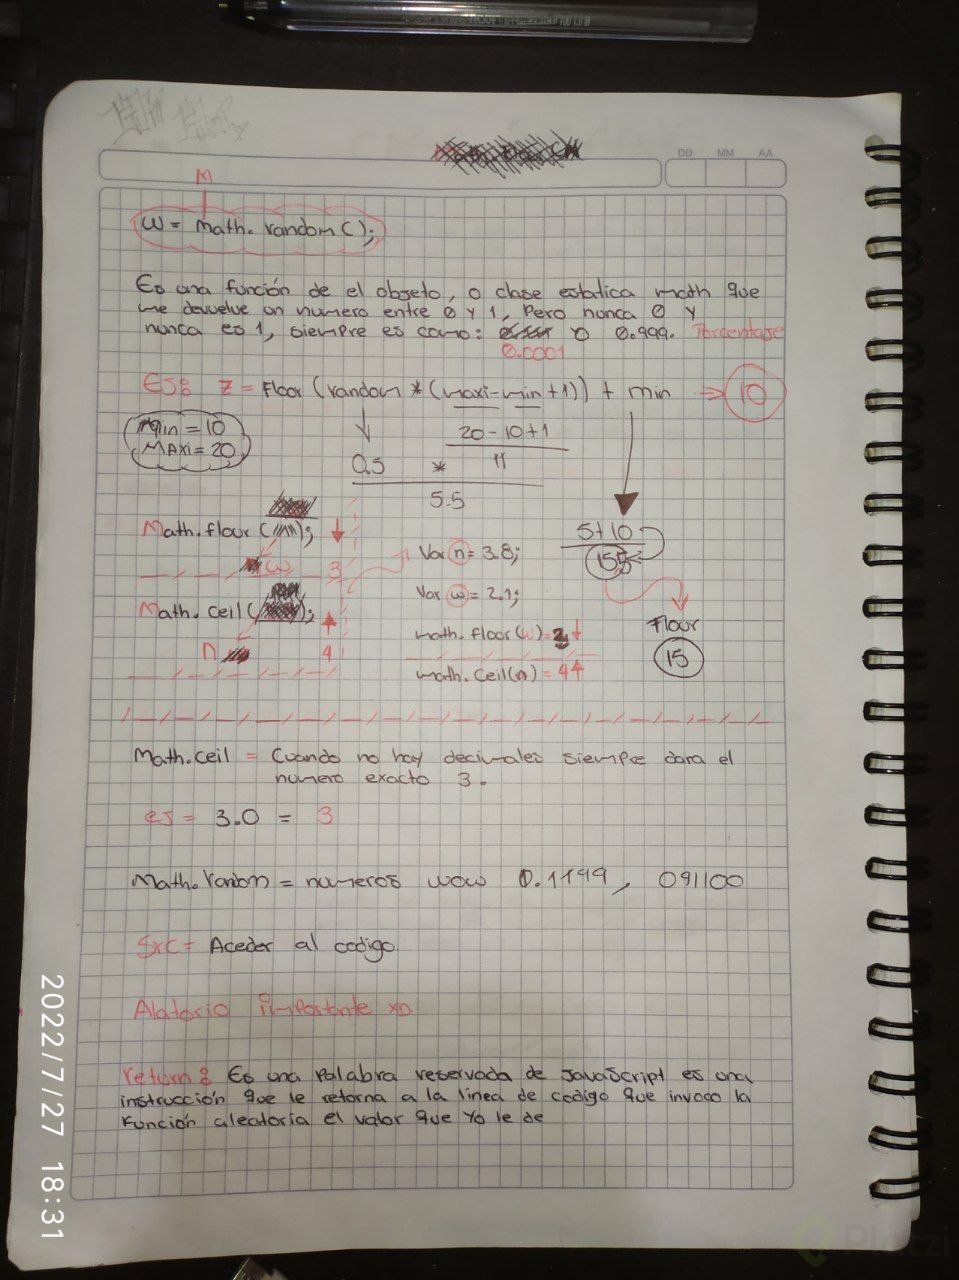 DD MM AA
M
w = math. random ( );
Es una función de el objeto, o clase estatica math que
me devuelve un numero entre 0 y 1, Pero nunca 0 y
nunca es 1, siempre es como: o 0.999. Porcentase
0.0001
Ejs Z = Floor (random * (maxi-min+1)) + min => 10
Min = 10
Maxi = 20
20 - 10+1
0.5 * 11
5.5
Math.flour ( );
w 3
5+10
155
Var n = 3.8;
Math. ceil ( );
Var w = 2.1;
n 4
math. floor(w) = 2
math. ceil(n) = 4
Flour
15
Math.ceil = Cuando no hay decimales siempre dara el
numero exacto 3.
ej = 3.0 = 3
Math.random = numeros wow 0.1199, 091100
Src = Aceder al codigo.
Alatorio importante xD
return: Es una Palabra reservada de JavaScript es una
instrucción que le retorna a la linea de codigo que invoco la
Función aleatoria el valor que yo le de
2022/7/27 18:31
Platzi